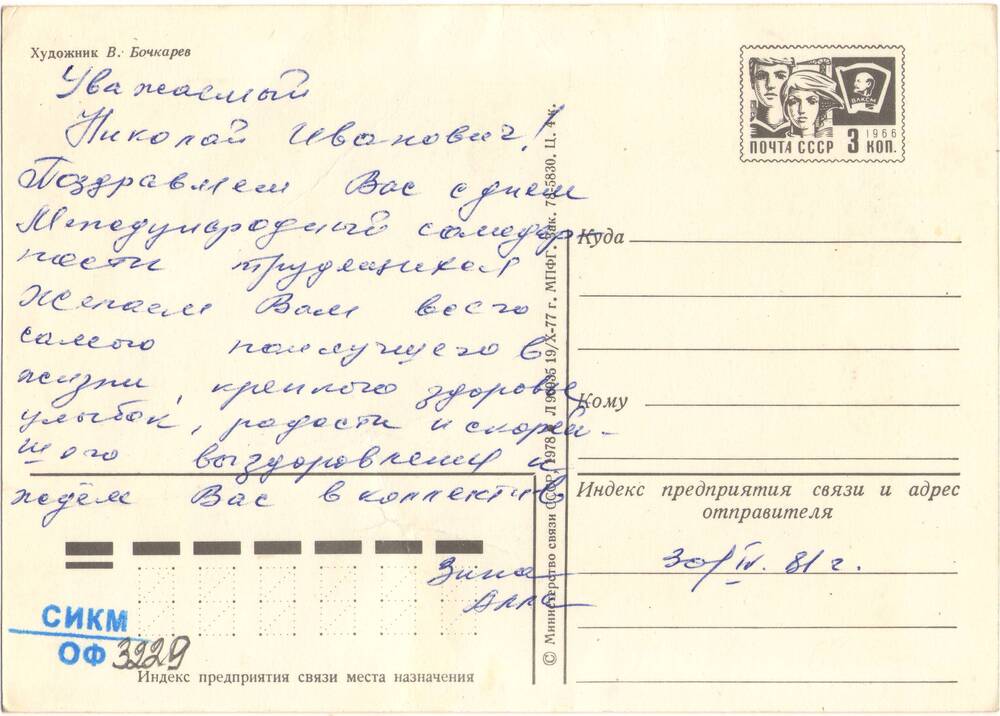 Художник В. Бочкарев
Уважаемый
Николай Иванович!
Поздравляем Вас с днем
Международный солидар-
ности трудящихся
Желаем Вам всего
самого наилучшего в
жизни, крепкого здоровье,
улыбок, радости и скорей-
шего выздоровления и
ждём Вас в коллективе
Зина
Алла
СИКМ
ОФ 3229
Индекс предприятия связи места назначения
© Министерство связи СССР, 1978 Л 96935 19/X-77 г. МПФГ. Зак. 78-5830. Ц. 4 к.
ВЛКСМ
1966
ПОЧТА СССР 3 КОП.
Куда
Кому
Индекс предприятия связи и адрес
отправителя
30/IV. 81 г.